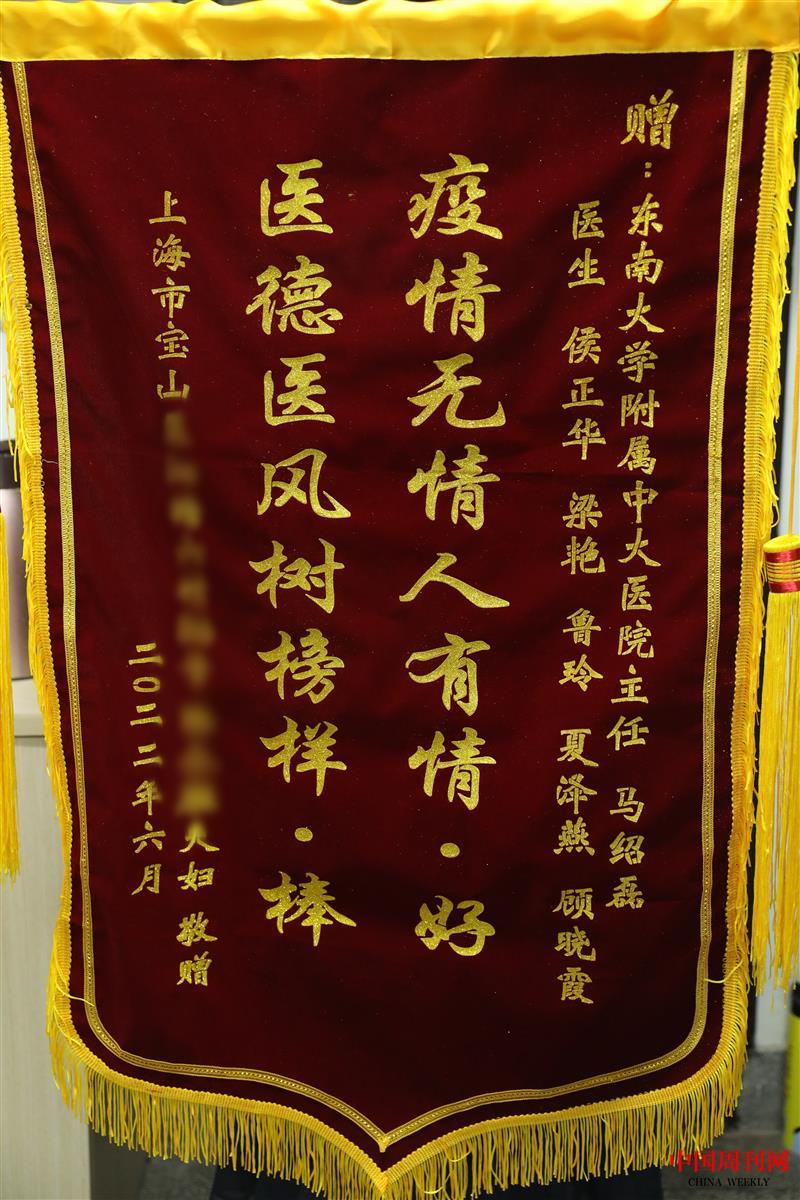 赠：东南大学附属中大医院主任 马绍磊
医生 侯正华 梁艳 鲁玲 夏泽燕 顾晓霞
疫情无情人有情·好
医德医风树榜样·棒
上海市宝山
夫妇 敬赠
二〇二二年六月
中国周刊网
CHINA WEEKLY